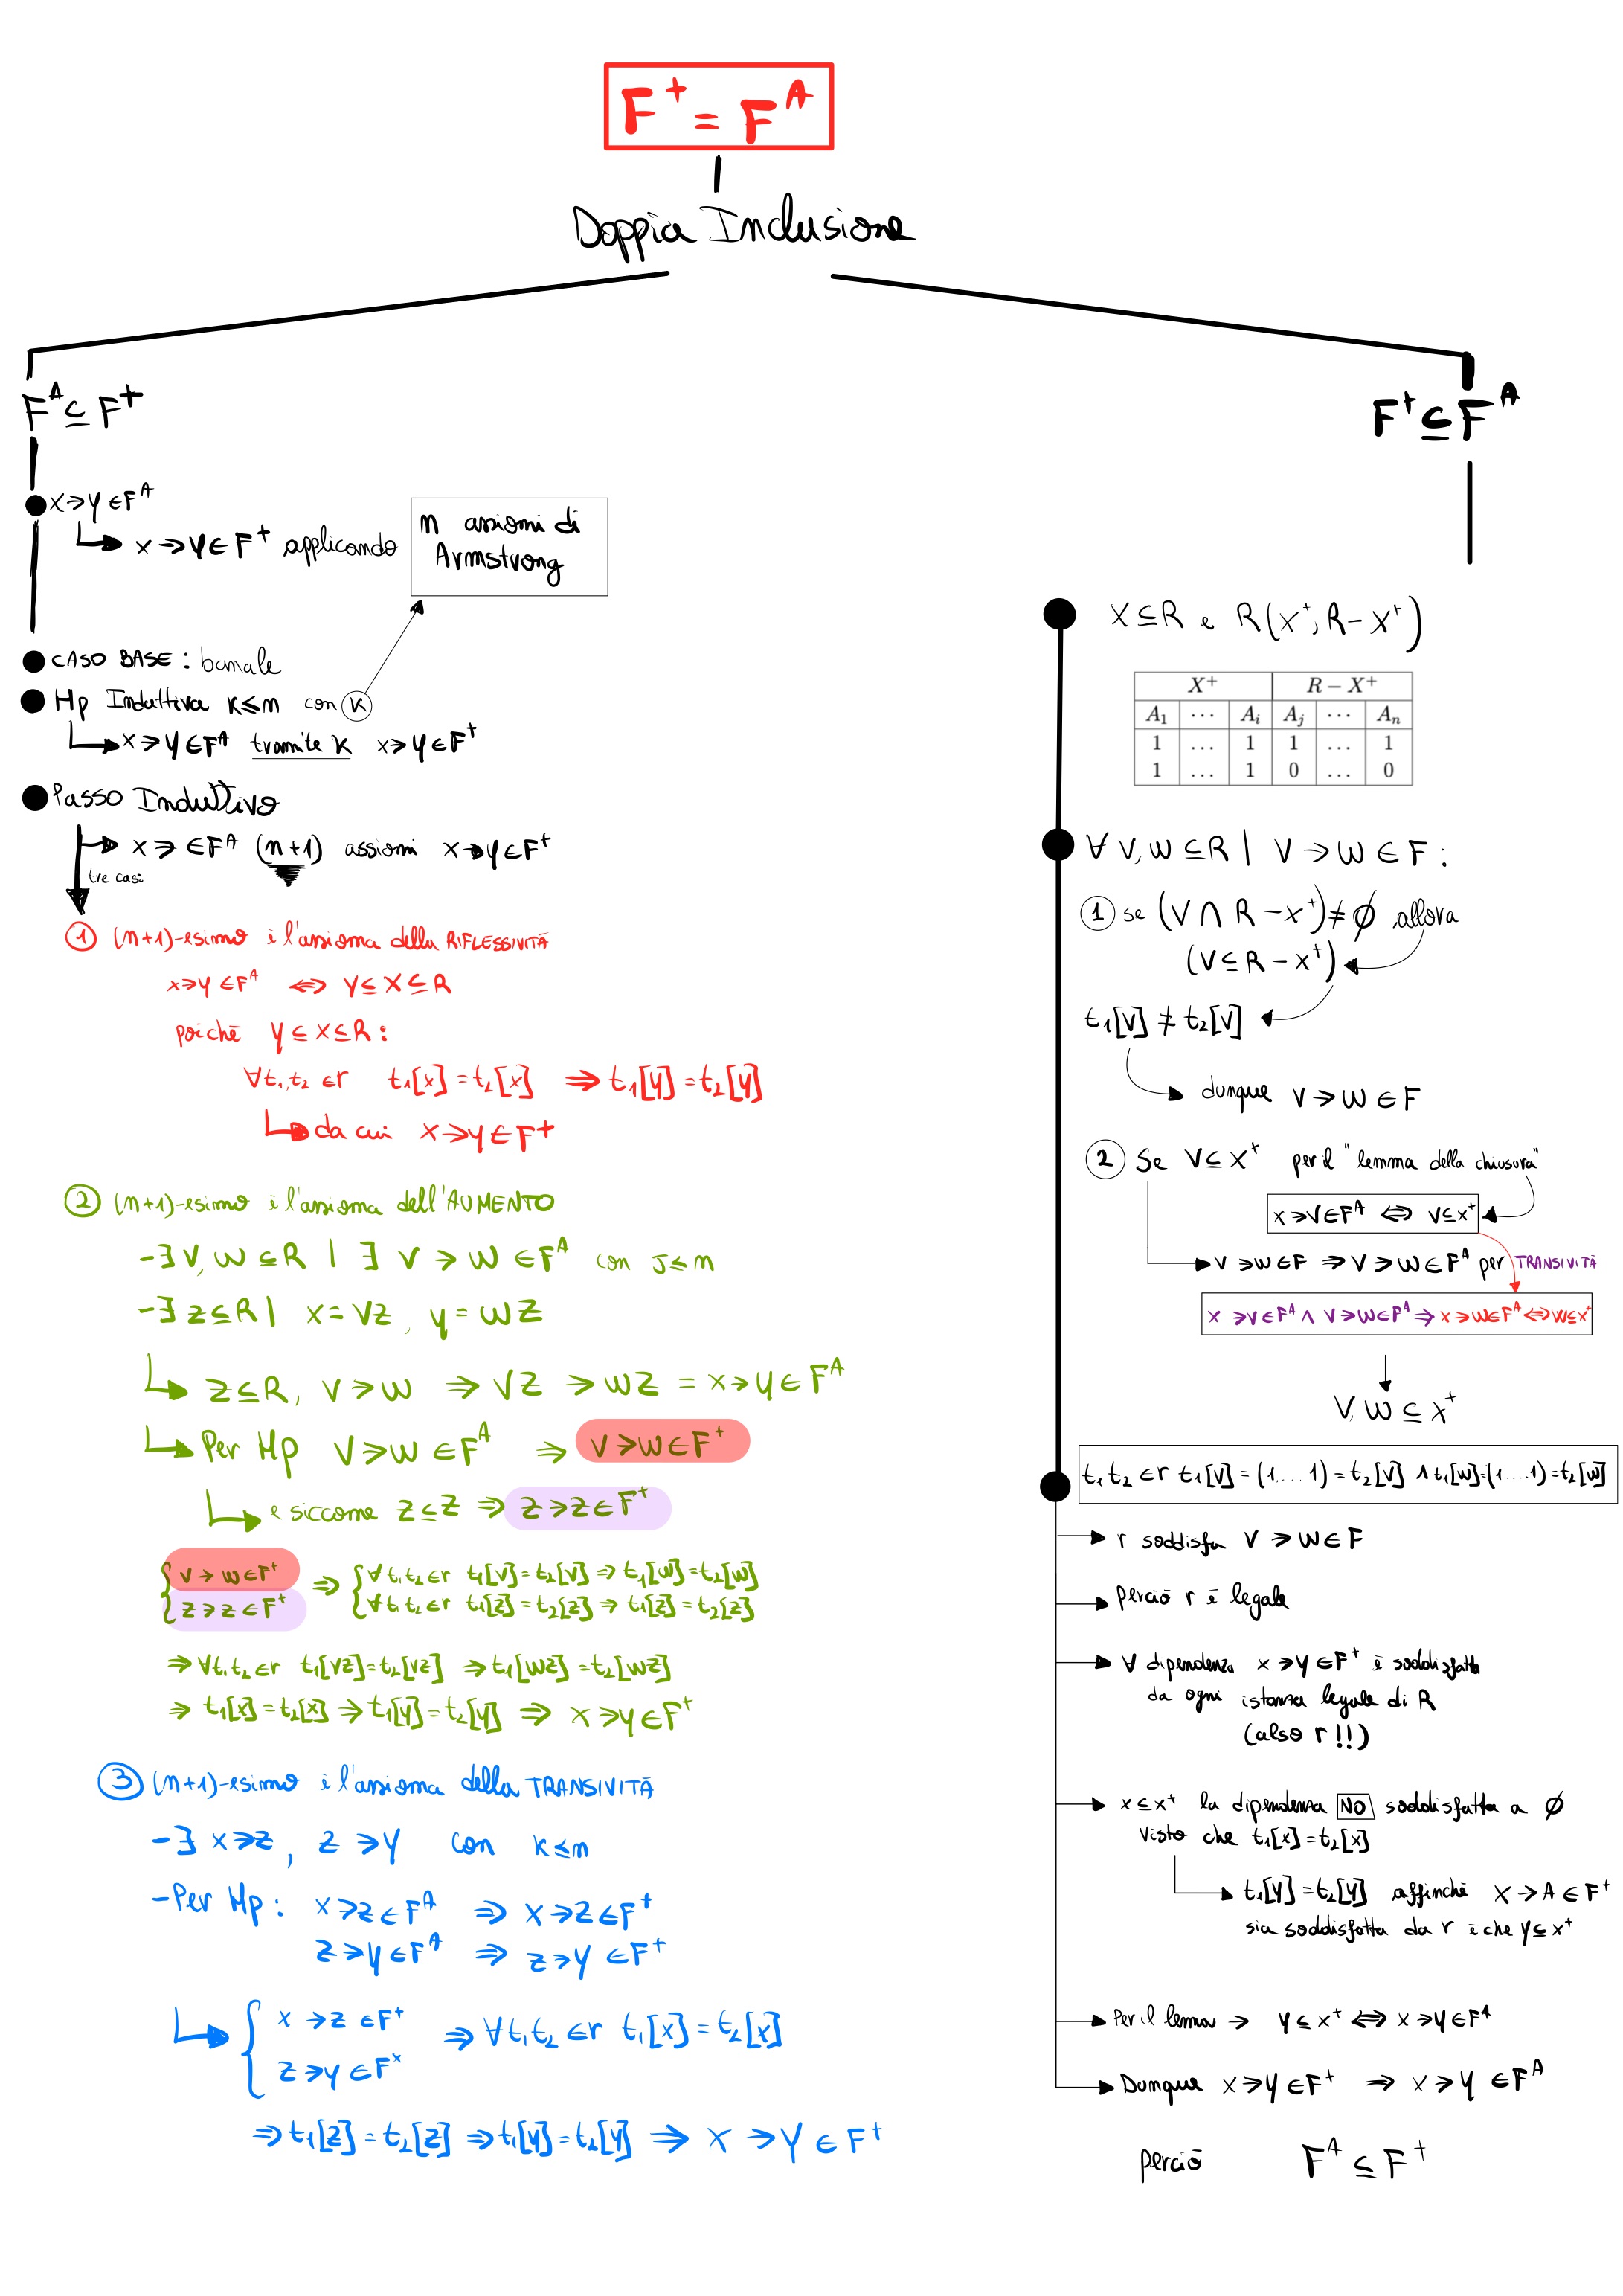 F⁺ = Fᴬ
Doppia Inclusione
Fᴬ ⊆ F⁺
x→y ∈ Fᴬ
x→y ∈ F⁺ applicando
n assiomi di
Armstrong
CASO BASE : banale
Hp Induttiva k≤n con k
x→y ∈ Fᴬ tramite k x→y ∈ F⁺
Passo Induttivo
x→ ∈ Fᴬ (n+1) assiomi x→y ∈ F⁺
tre casi
① (n+1)-esimo è l'assioma della RIFLESSIVITÀ
x→y ∈ Fᴬ ⇔ y ⊆ x ⊆ R
poichè y ⊆ x ⊆ R :
∀t₁,t₂ ∈ r t₁[x] = t₂[x] ⇒ t₁[y] = t₂[y]
da cui x→y ∈ F⁺
② (n+1)-esimo è l'assioma dell'AUMENTO
-∃ V, W ⊆ R | ∃ V → W ∈ Fᴬ con J≤n
-∃ z ⊆ R | x = Vz , y = Wz
z ⊆ R, V→W ⇒ VZ → WZ = x→y ∈ Fᴬ
Per Hp V→W ∈ Fᴬ ⇒ V→W ∈ F⁺
e siccome z ⊆ z ⇒ z→z ∈ F⁺
{ V → W ∈ F⁺ ⇒ { ∀t₁t₂ ∈ r t₁[V] = t₂[V] ⇒ t₁[W] = t₂[W]
{ z→z ∈ F⁺ { ∀t₁t₂ ∈ r t₁[z] = t₂[z] ⇒ t₁[z] = t₂[z]
⇒ ∀t₁t₂ ∈ r t₁[Vz] = t₂[Vz] ⇒ t₁[Wz] = t₂[Wz]
⇒ t₁[x] = t₂[x] ⇒ t₁[y] = t₂[y] ⇒ x→y ∈ F⁺
③ (n+1)-esimo è l'assioma della TRANSIVITÀ
-∃ x→z, z→y con k≤n
-Per Hp : x→z ∈ Fᴬ ⇒ x→z ∈ F⁺
z→y ∈ Fᴬ ⇒ z→y ∈ F⁺
{ x→z ∈ F⁺ ⇒ ∀t₁t₂ ∈ r t₁[x] = t₂[x]
{ z→y ∈ Fˣ
⇒ t₁[z] = t₂[z] ⇒ t₁[y] = t₂[y] ⇒ x→y ∈ F⁺
F⁺ ⊆ Fᴬ
X ⊆ R e R(X⁺; R-X⁺)
X⁺ R − X⁺
A₁ ⋯ Aᵢ Aⱼ ⋯ Aₙ
1 … 1 1 … 1
1 … 1 0 … 0
∀ V, W ⊆ R | V → W ∈ F :
① se (V ∩ R - X⁺) ≠ ∅ allora
(V ⊆ R - X⁺)
t₁[V] ≠ t₂[V]
dunque V→W ∈ F
② Se V ⊆ X⁺ per il "lemma della chiusura"
x→V ∈ Fᴬ ⇔ V ⊆ x⁺
V→W ∈ F ⇒ V→W ∈ Fᴬ per TRANSIVITÀ
x→V ∈ Fᴬ ∧ V→W ∈ Fᴬ ⇒ x→W ∈ Fᴬ ⇔ W ⊆ x⁺
V, W ⊆ x⁺
t₁ t₂ ∈ r t₁[V] = (1....1) = t₂[V] ∧ t₁[W] = (1....1) = t₂[W]
r soddisfa V → W ∈ F
Perciò r è legale
∀ dipendenza x→y ∈ F⁺ è soddisfatta
da ogni istanza legale di R
(also r !!)
x ⊆ x⁺ la dipendenza NO soddisfatta a ∅
visto che t₁[x] = t₂[x]
t₁[y] = t₂[y] affinchè x→A ∈ F⁺
sia soddisfatta da r è che y ⊆ x⁺
Per il lemma → y ⊆ x⁺ ⇔ x→y ∈ Fᴬ
Dunque x→y ∈ F⁺ ⇒ x→y ∈ Fᴬ
perciò Fᴬ ⊆ F⁺